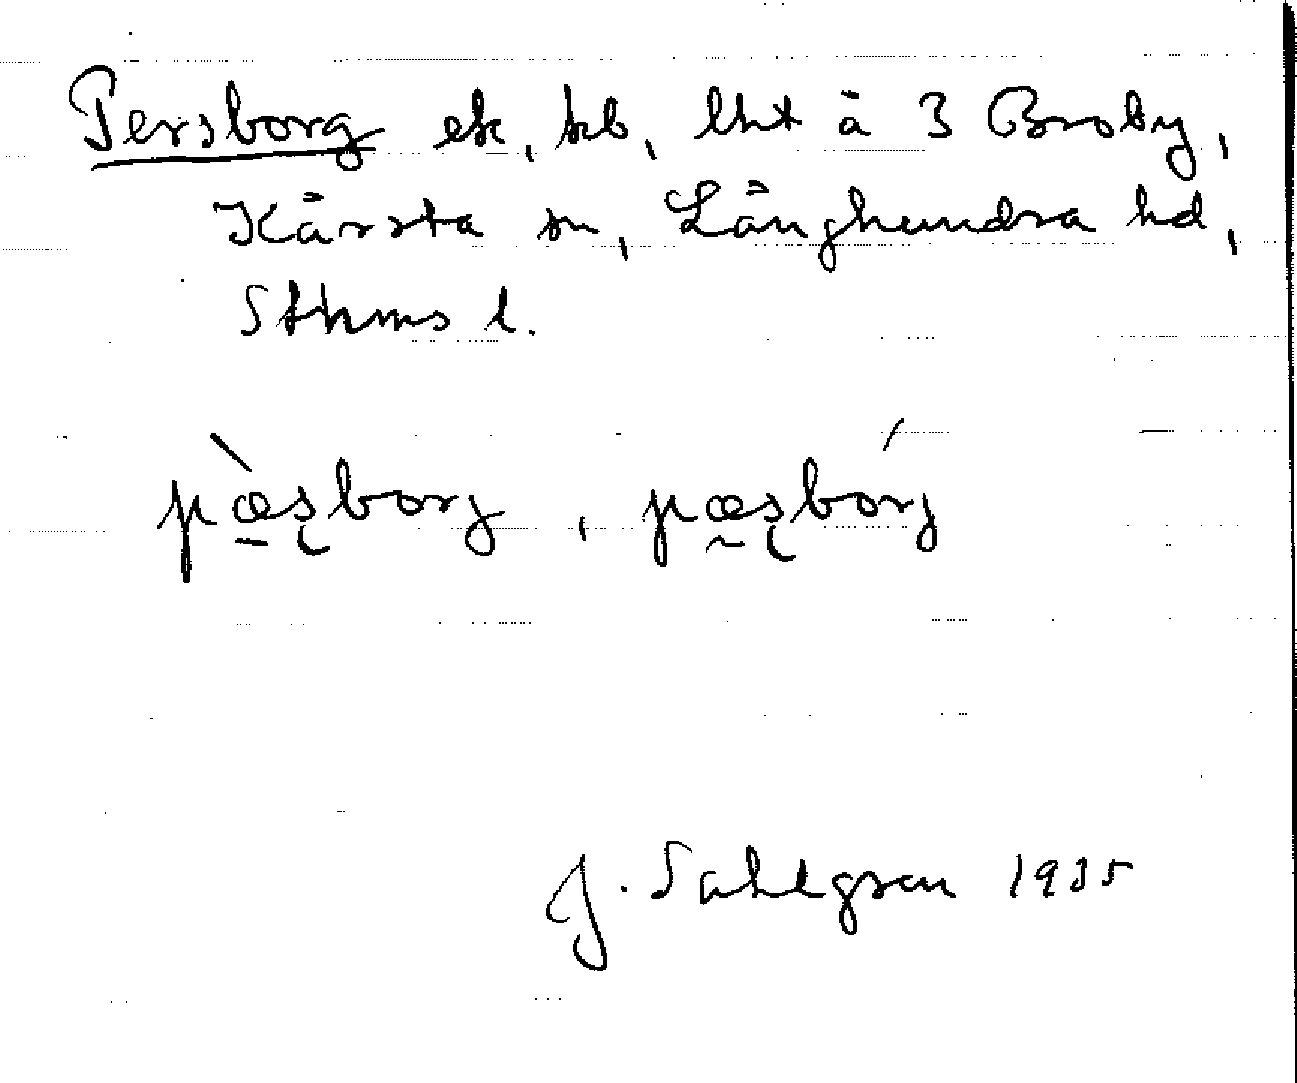 Persborg ek, kb, lht å 3 Broby,
Kårsta sn, Långhundra hd,
Sthms l.
pæ̀ʂborj, pæʂbórj
J. Sahlgren 1935